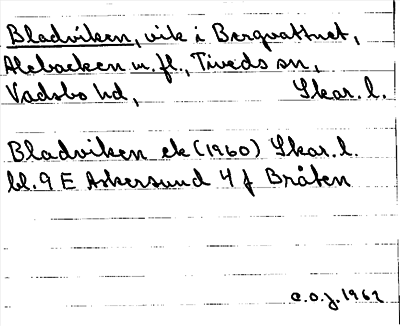 Bladviken, vik i Bergvattnet,
Alebacken m. fl., Tiveds sn,
Vadsbo hd, Skar. l.
Bladviken ek (1960) Skar. l.
bl. 9 E Askersund 4 f Bråten
C.O.J. 1962